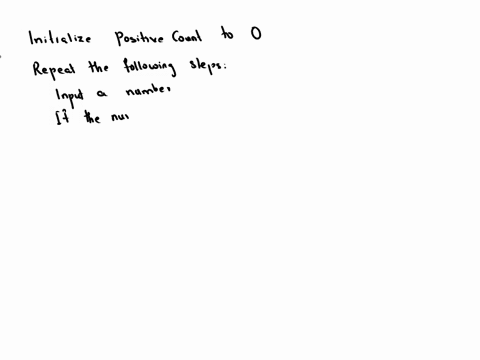 Initialize Positive Count to 0
Repeat the following steps:
Input a number
If the nu